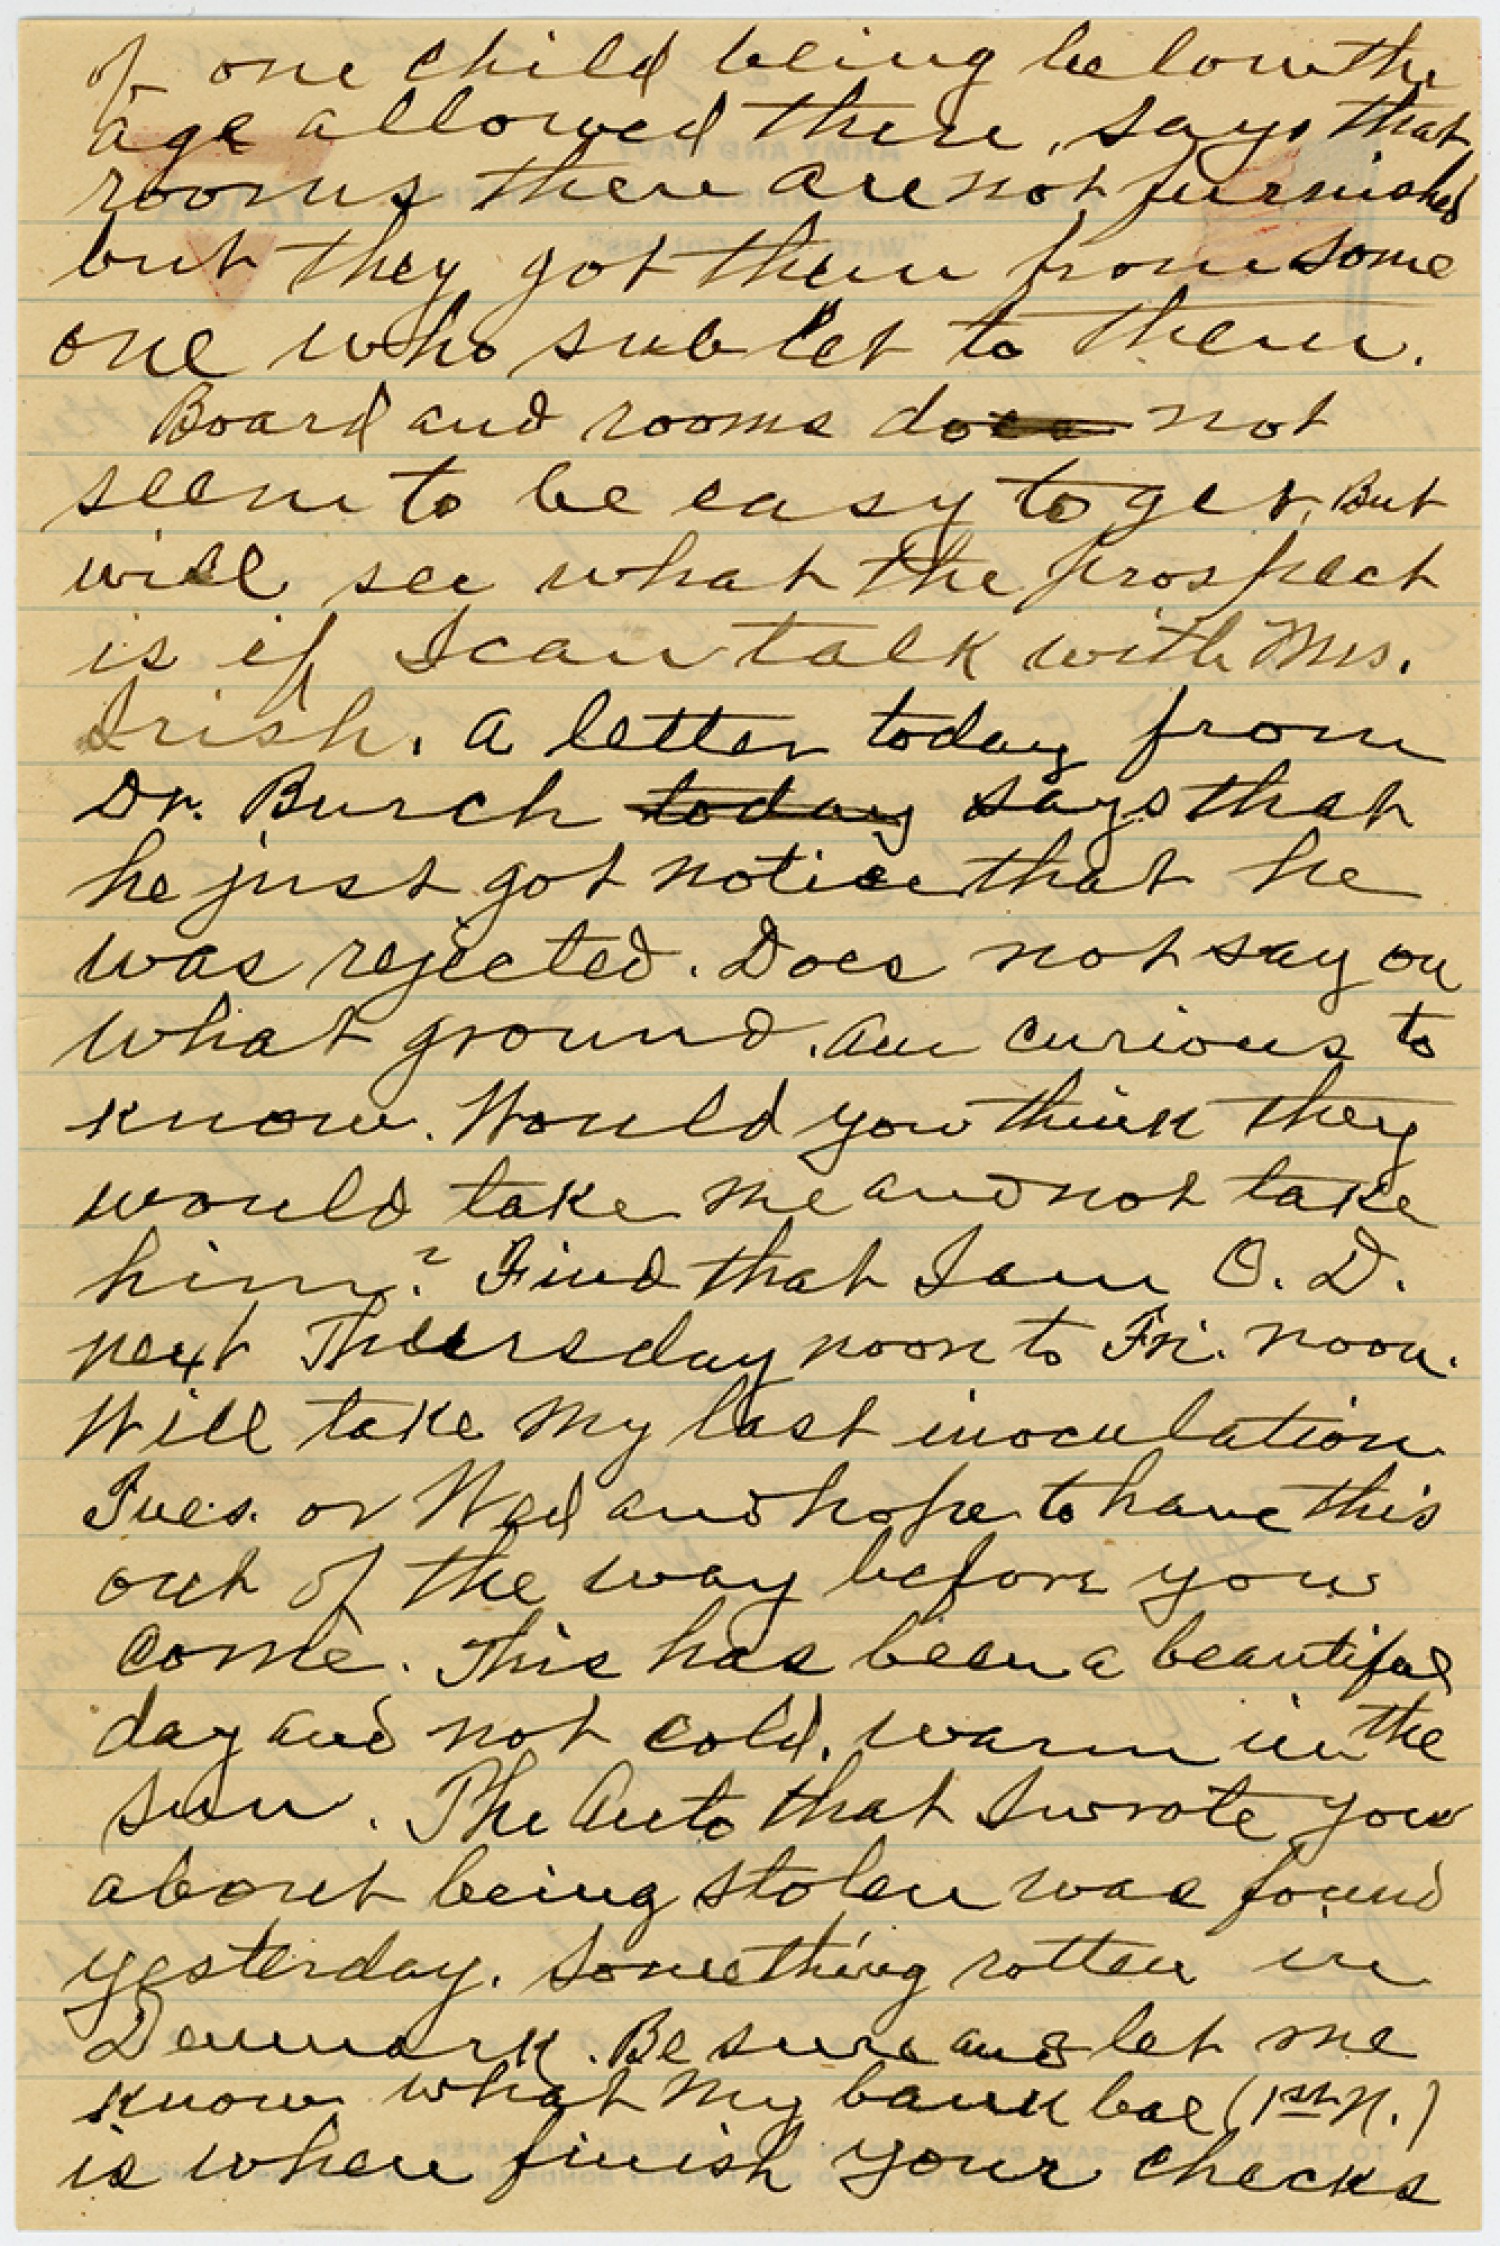 of one child being below the
age allowed there, says that
rooms there are not furnished
but they got them from some
one who sub let to them.
Board and rooms does not
seem to be easy to get. But
will see what the prospect
is if I can talk with Mrs.
Irish. A letter today from
Dr. Burch today says that
he just got notice that he
was rejected. Does not say on
what ground. am curious to
know. Would you think they
would take me and not take
him? Find that I am O. D.
next Thursday noon to Fri. noon.
Will take my last inoculation
Tues. or Wed and hope to have this
out of the way before you
come. This has been a beautiful
day and not cold, warm in the
sun. The Auto that I wrote you
about being stolen was found
yesterday. Something rotten in
Denmark. Be sure and let me
know what my bank bal (1st N.)
is when finish your checks